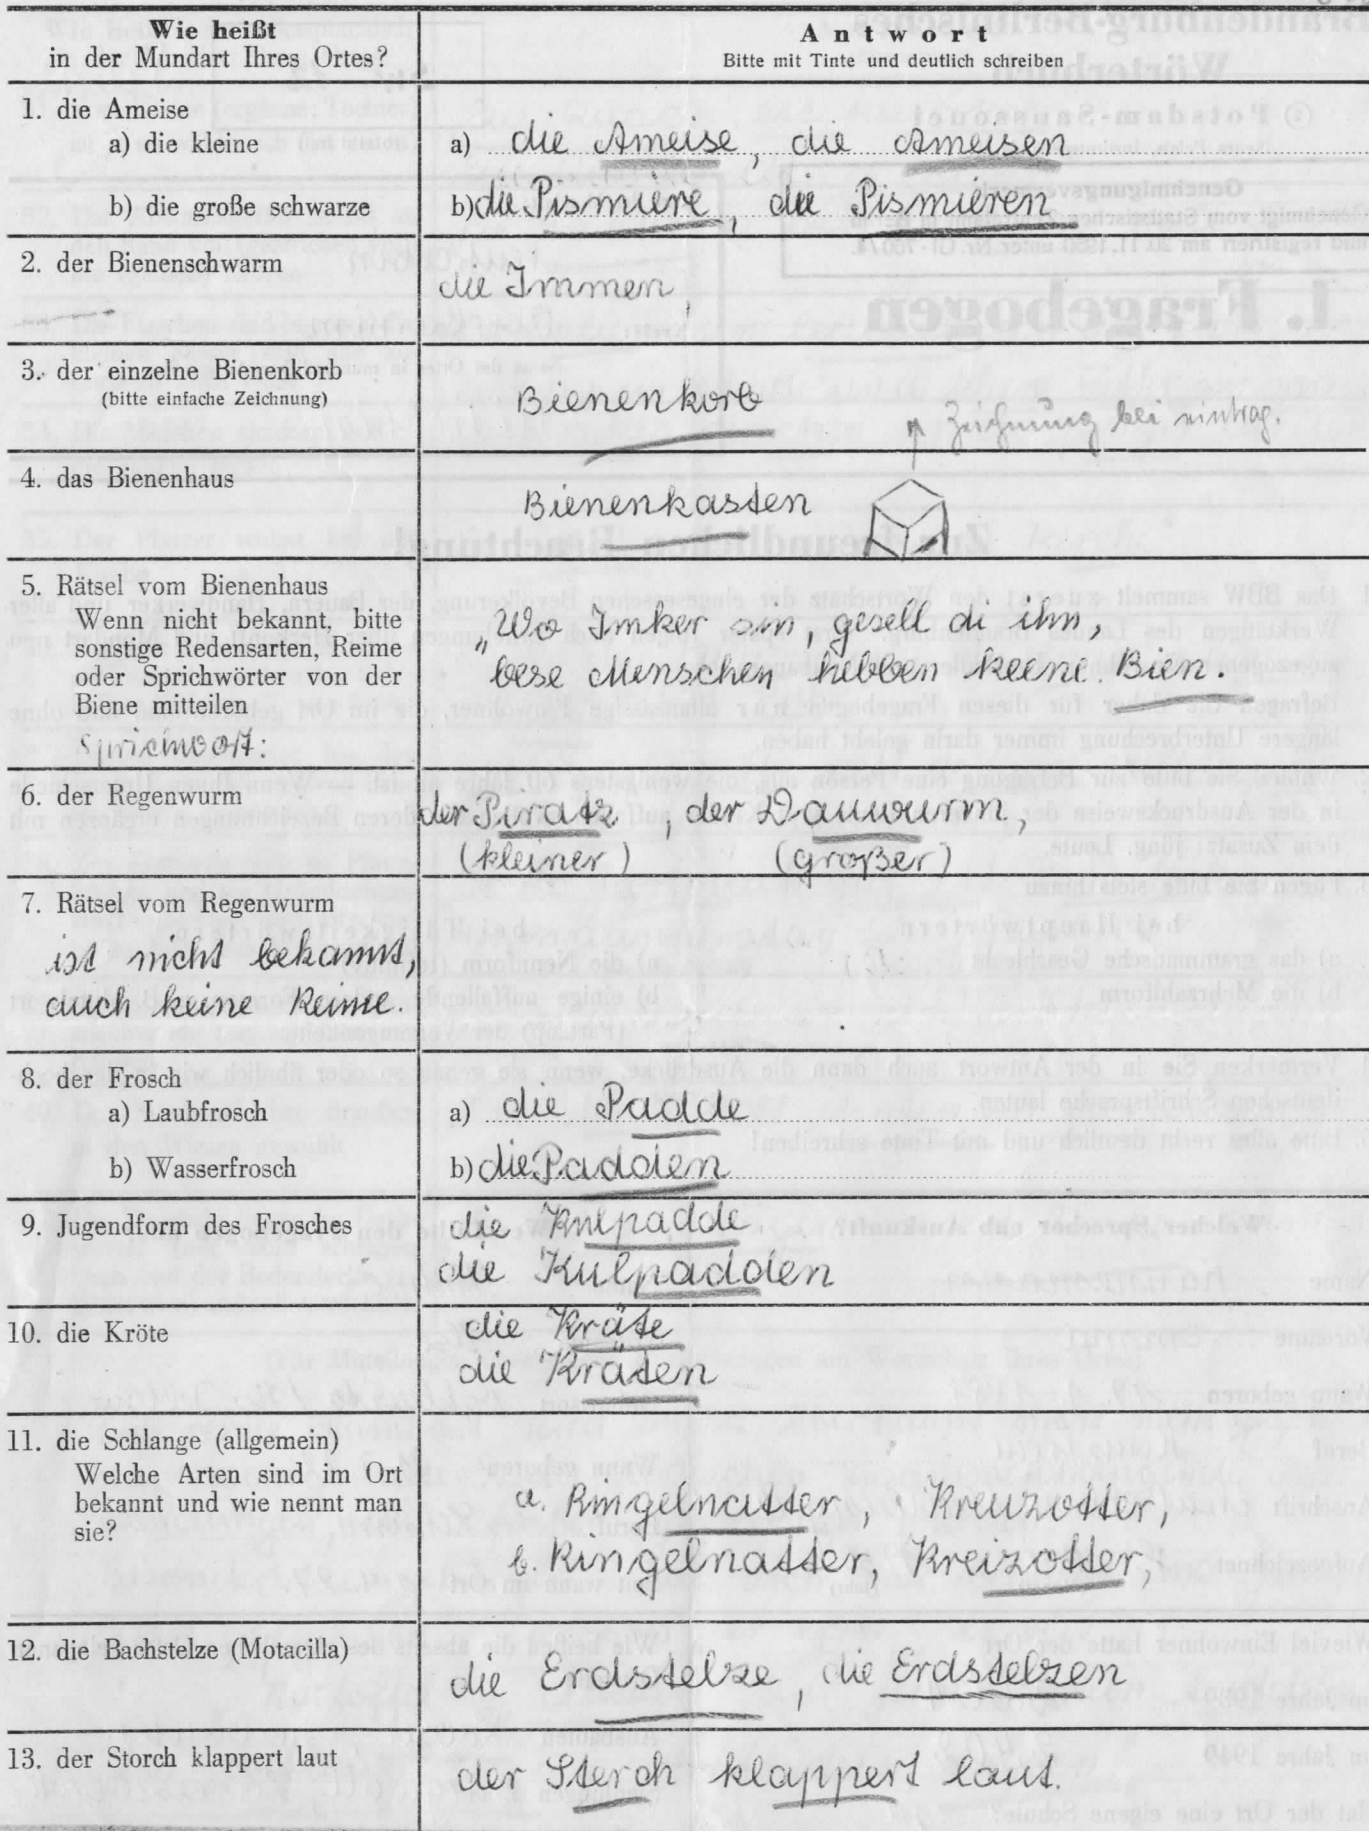 Wie heißt
in der Mundart Ihres Ortes?
Antwort
Bitte mit Tinte und deutlich schreiben
1. die Ameise
a) die kleine
a) die Ameise, die Ameisen
b) die große schwarze
b) die Pismiere, die Pismieren
2. der Bienenschwarm
die Immen,
3. der einzelne Bienenkorb
(bitte einfache Zeichnung)
Bienenkorb
Zeichnung bei eintrag.
4. das Bienenhaus
Bienenkasten
5. Rätsel vom Bienenhaus
Wenn nicht bekannt, bitte
sonstige Redensarten, Reime
oder Sprichwörter von der
Biene mitteilen
Sprichwort:
„Wo Imker sin, gesell di ihn,
bese Menschen hebben keene Bien.
6. der Regenwurm
der Piratz, der Dauwurm,
(kleiner) (großer)
7. Rätsel vom Regenwurm
ist nicht bekannt,
auch keine Reime.
8. der Frosch
a) Laubfrosch
a) die Padde
b) Wasserfrosch
b) die Padden
9. Jugendform des Frosches
die Kulpadde
die Kulpadden
10. die Kröte
die Kräte
die Kräten
11. die Schlange (allgemein)
Welche Arten sind im Ort
bekannt und wie nennt man
sie?
a. Ringelnatter, Kreuzotter,
b. Ringelnatter, Kreizotter,
12. die Bachstelze (Motacilla)
die Erdstelze, die Erdstelzen
13. der Storch klappert laut
der Sterch klappert laut.